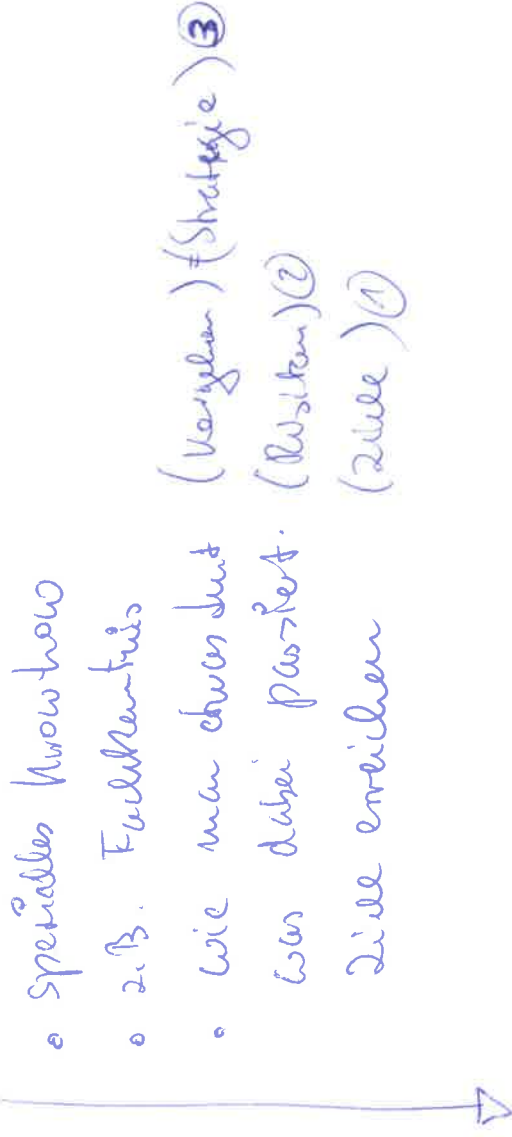 • Spezielles Knowhow
• z.B. Fachkenntnis
• Wie man etwas tut (Vorgehen) + (Strategie) ③
was dabei passiert. (Risiken) ②
Ziele erreichen (Ziele) ①